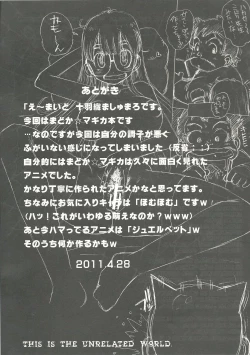 あとがき
「え〜まいど 十羽織ましゅまろです。
今回はまどか☆マギカ本です
…なのですが今回は自分の調子が悪く
ふがいない感じになってしまいました(反省;;)
自分的にはまどか☆マギカは久々に面白く見れた
アニメでした。
かなり丁寧に作られたアニメかなと思ってます。
ちなみにお気に入りキャラは「ほむほむ」ですｗ
(ハッ！これがいわゆる萌えなのか？ｗｗｗ)
あと今ハマってるアニメは「ジュエルペット」ｗ
そのうち何か作るかもｗ
2011.4.28
THIS IS THE UNRELATED WORLD